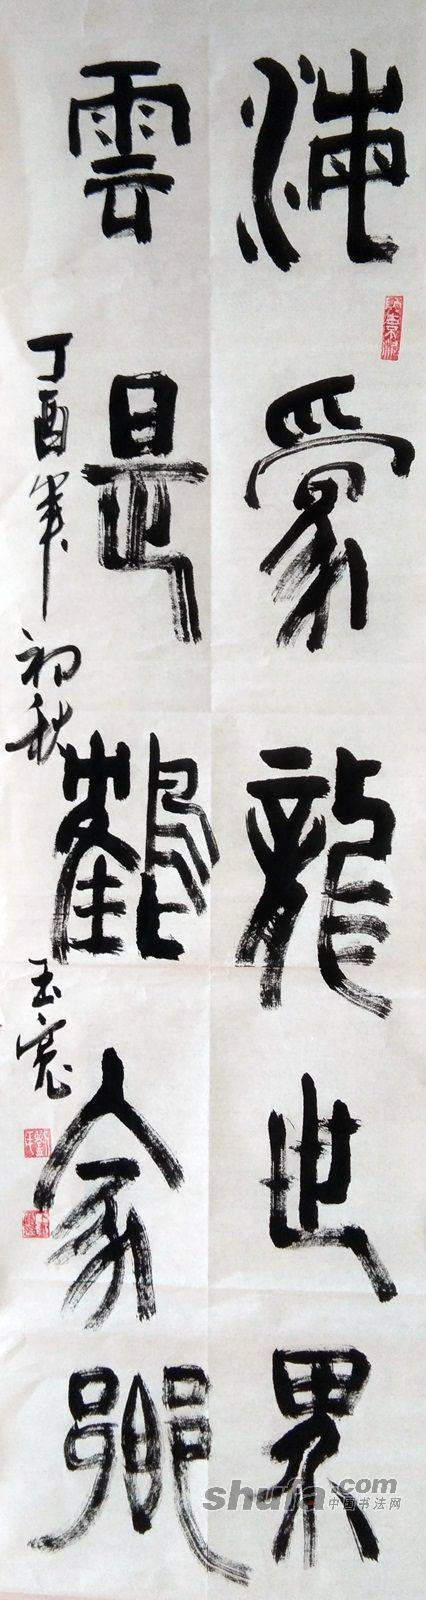 海為龍世界
雲是鶴家鄉
丁酉年初秋 玉亮
shufa.com
中国书法网